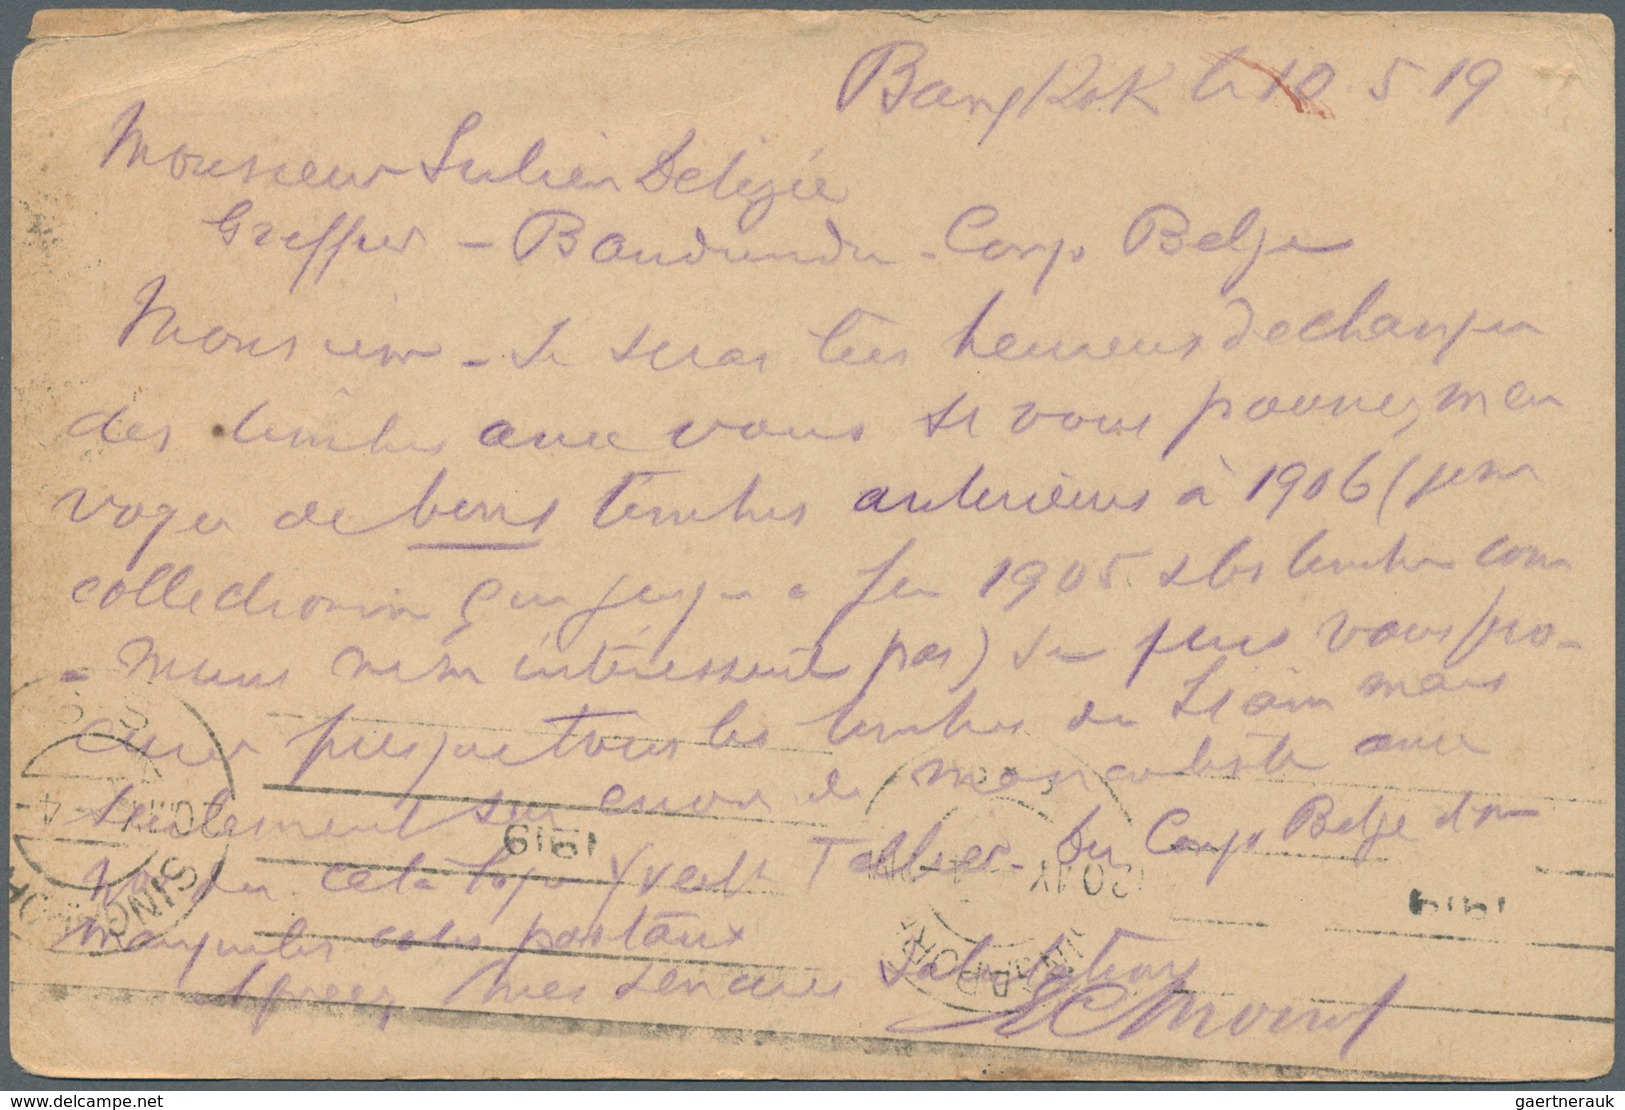 Bangkok le 10.5.19
Monsieur Julien Delizée
Greffier - Bandundu - Congo Belge
Monsieur - Je serais très heureux d'echanger
des timbres avec vous si vous pouvez m'en
voyer de bons timbres anterieurs à 1906 (je ne
collectionne que jusqu'a fin 1905. & les timbres com
- muns ne m'interessent pas) Je puis vous pro-
curer presque tous les timbres du Siam mais
seulement sur envoi de mancoliste avec
Nos du catalogue Yvert Tellier. Du Congo Belge il me
manque les colis postaux
Agreez mes sinceres Salutations
SINGAPORE
1919
SINGAPORE
1919
delcampe.net
gaertnerauk